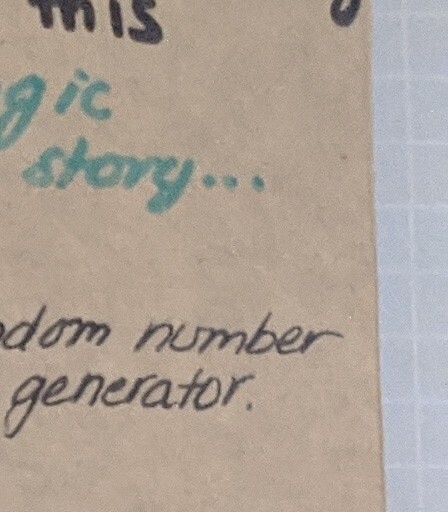 this
gic
story...
dom number
generator.